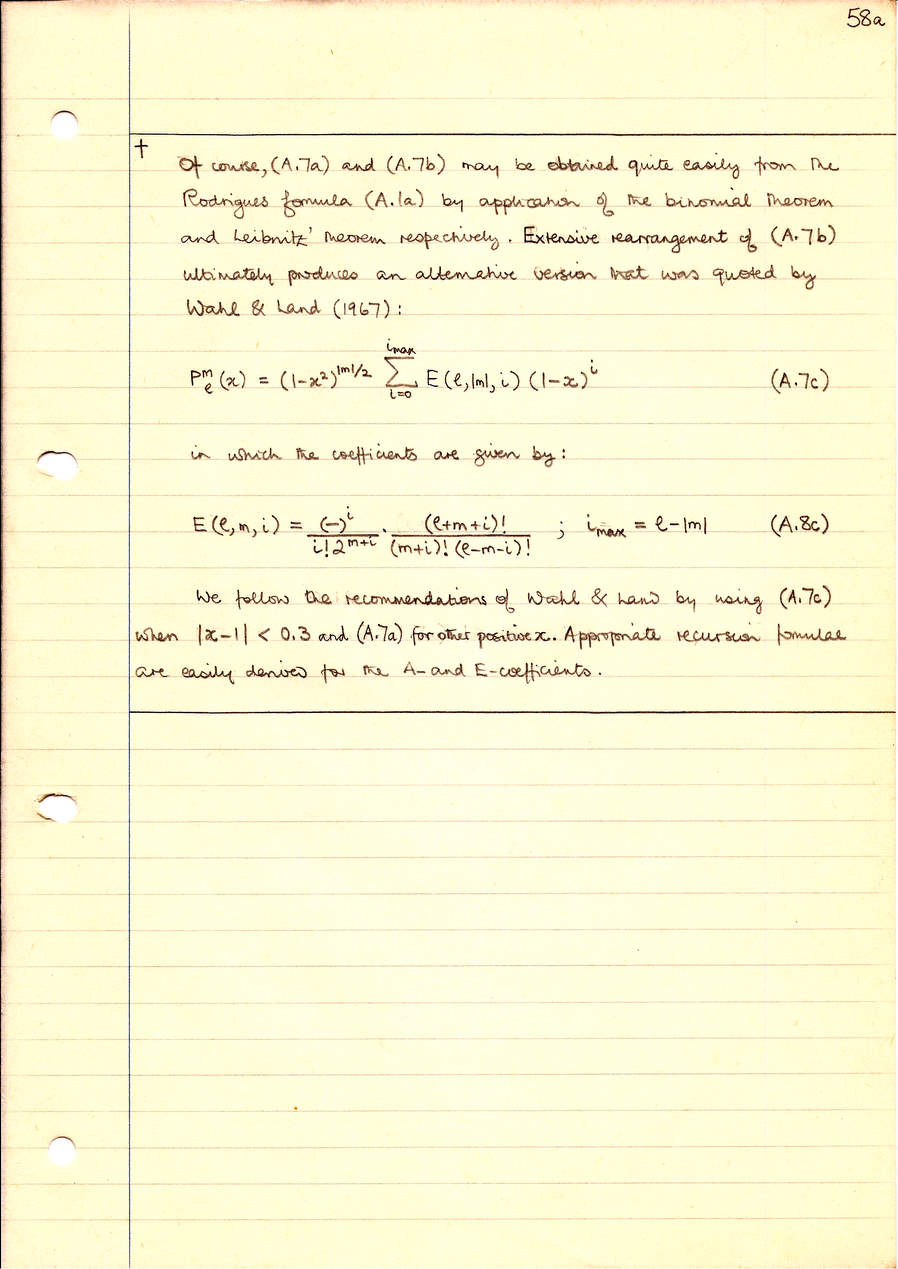 58a
†
Of course, (A.7a) and (A.7b) may be obtained quite easily from the
Rodrigues formula (A.1a) by application of the binomial theorem
and Leibnitz' theorem respectively. Extensive rearrangement of (A.7b)
ultimately produces an alternative version that was quoted by
Wahl & Land (1967):
P_ℓ^m (x) = (1-x²)^{|m|/2} ∑_{i=0}^{i_max} E(ℓ,|m|,i) (1-x)^i (A.7c)
in which the coefficients are given by:
E(ℓ,m,i) = (-)^i / (i! 2^{m+i}) · (ℓ+m+i)! / ((m+i)! (ℓ-m-i)!) ; i_max = ℓ-|m| (A.8c)
We follow the recommendations of Wahl & Land by using (A.7c)
when |x-1| < 0.3 and (A.7a) for other positive x. Appropriate recursion formulae
are easily derived for the A- and E-coefficients.